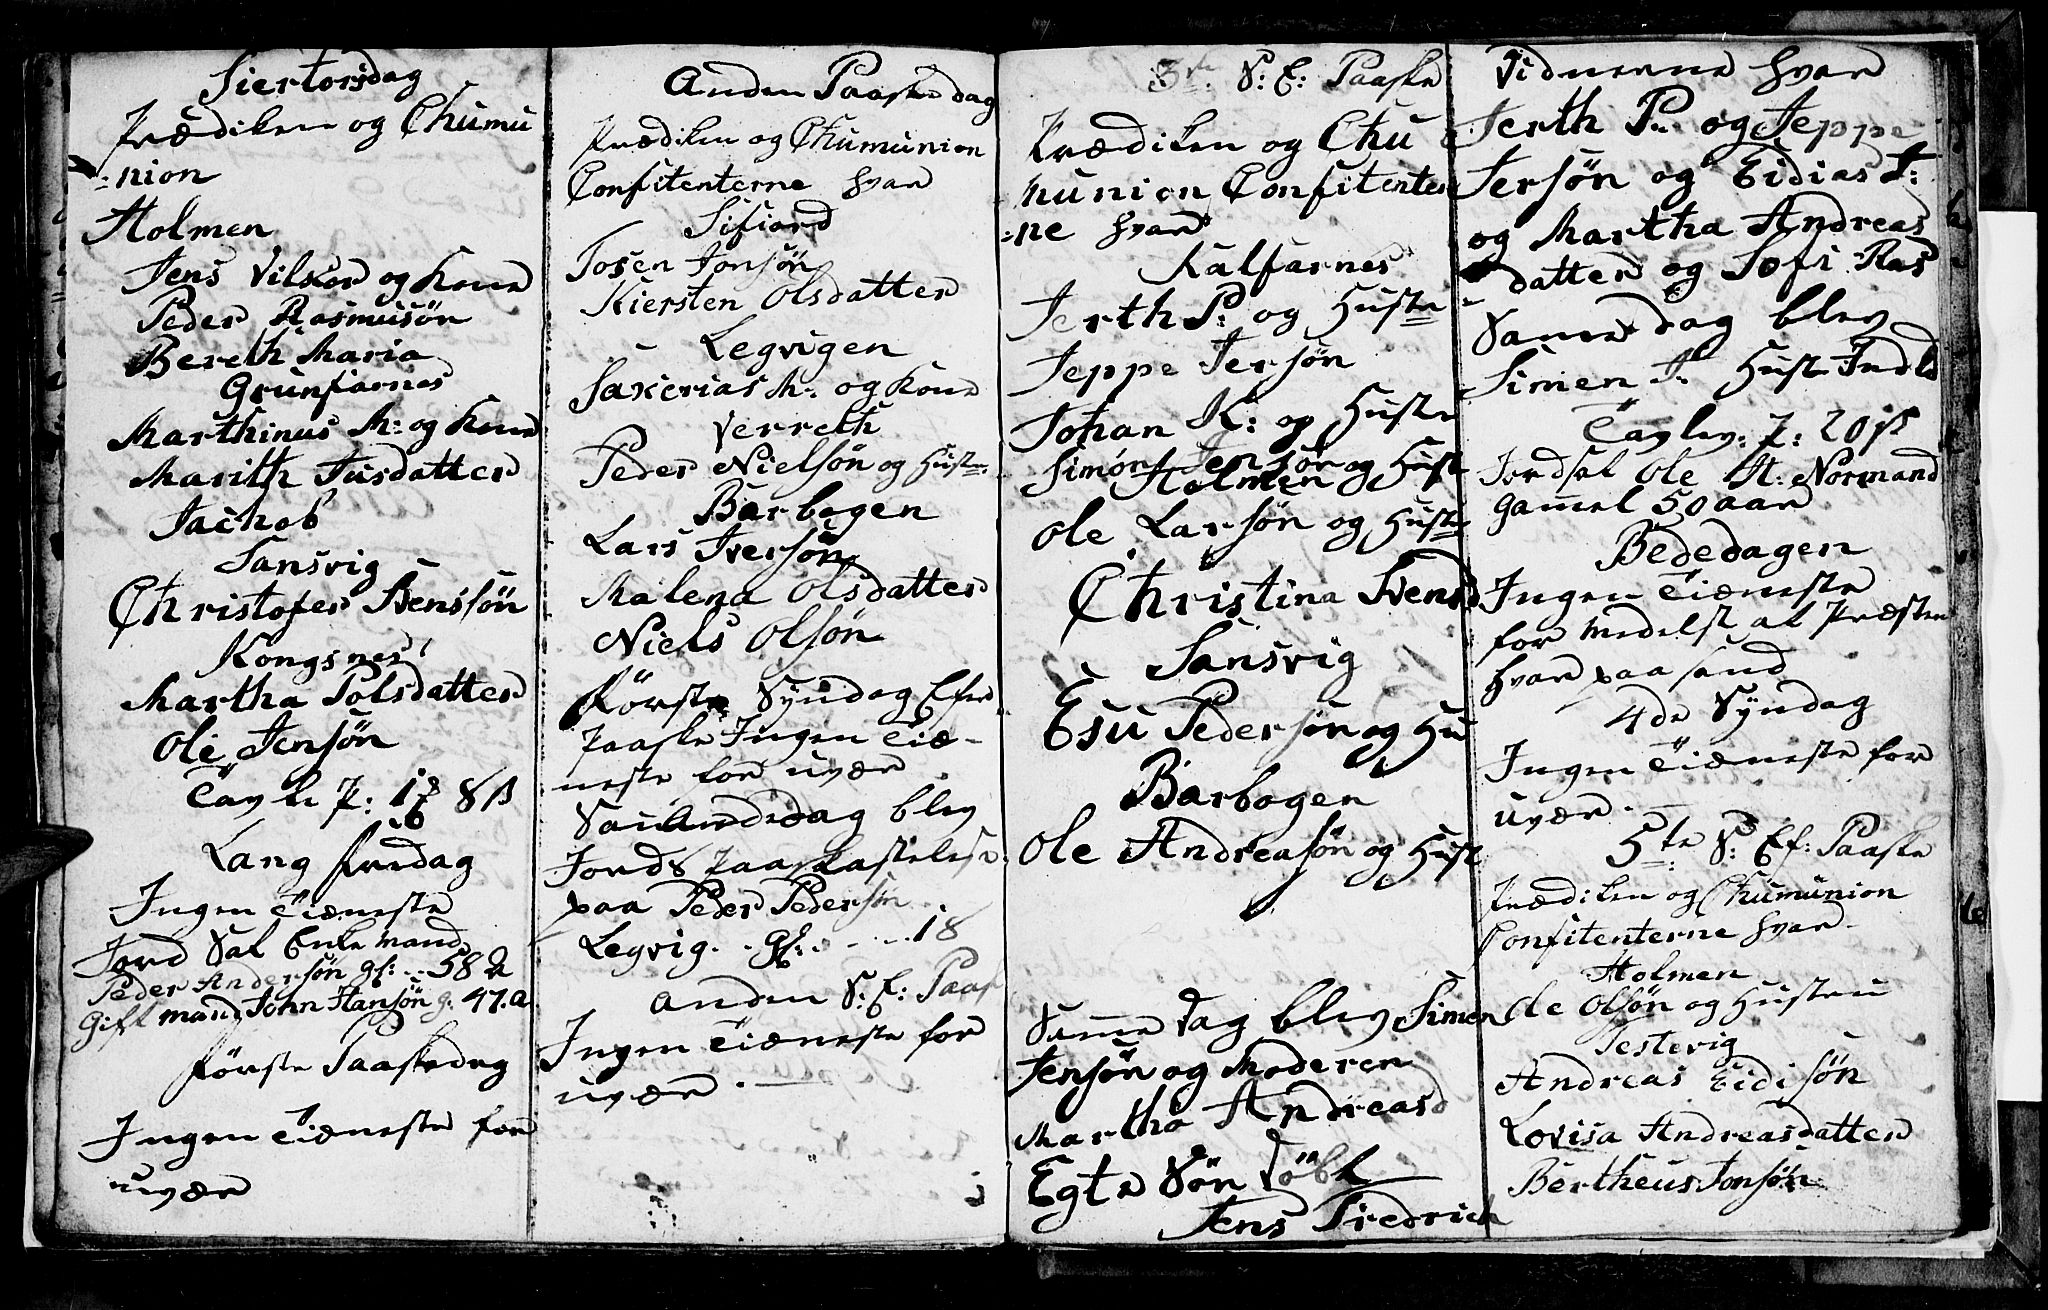 Siertorsdag
Prædiken og Chumu
=nion
Holmen
Jens Vilsør og Kone
Peder Rasmusøn
Bereth Maria
Grunfarnes
Marthinus M: og Kone
Marith Jusdatter
Jachob
Sansvig
Christofer Bensøn
Kongsnes
Martha Polsdatter
Ole Jensøn
8 ß
Lang fredag
Ingen Tiæneste
Jord Sat Enke Mand
Peder Andersøn gl: .. 58 a
Gift mand John Hansøn g. 47. a
förste Paaskedag
Ingen Tiæneste for
uvær
Anden Paaskedag
Prædiken og Chumunion
Confitenterne hvar
Sifiord
Tosen Jonsøn
Kiersten Olsdatter
Legvigen
Saxerias M: og Kone
Verreth
Peder Nielsøn og Hust=
Barbogen
Lars Iversøn
Malena Olsdatter
Niels Olsøn
förste Syndag Efter
Paaske Ingen Tiæ-
neste for uvær
dag blev
Jords
paa Peder Pedersøn
Legvig. . gl: . . . . . 18
Anden S: E: Paas
Ingen Tiæneste for
uvær . —
3de S: E: Paaske
Prædiken og Chu
munion Confitenter
=ne hvar
Kalfarnes
Jerth P: og Hustr
Jeppe Jersøn
Johan K: og Hustr
Simon Jensøn og Hust
Holmen
Ole Larsøn og Hustr
Christina Svensd
Sansvig
Esu Pedersøn og Hu
Barbogen
Ole Andreasøn og Hust
Same Dag blev Simen
Jensøn og Moderen
Martha Andreasd
Egte Søn Døbt
Jens Fredrich
Vidnerne hvar
Jerth P: og Jeppe
Jersøn og Eidias J:
og Martha Andreas
datter og Sofi Ras
Same dag blev
Simen J: Hust Indld
Tavlep: 20 ß
Jordsat Ole A: Normand
gamel 50 aar
Bededagen
Ingen Tiæneste
for medelst at Præsten
hvar paa sand
4de Syndag
Ingen Tiæneste for
uvær . —
5te S: Ef: Paaske
Prædiken og Chumunion
Confitenterne hvar
Holmen
Ole Olsøn og Hustru
Testevig
Andreas Eidisøn
Lovisa Andreasdatter
Bertheus Jonsøn